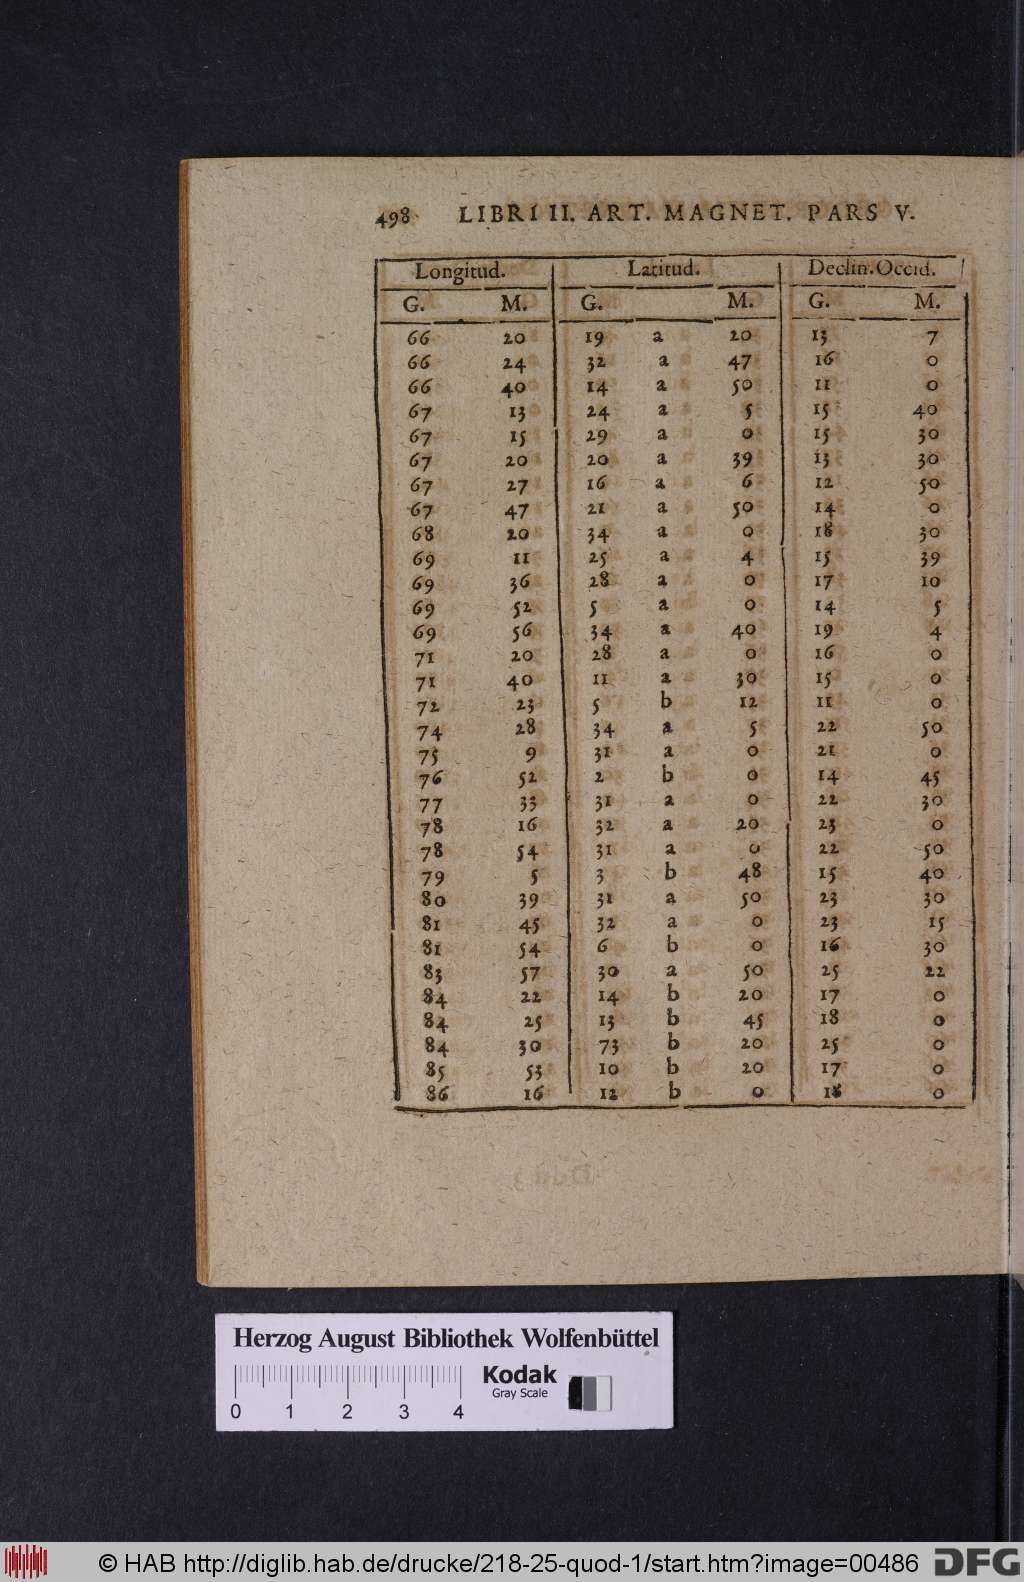 498 LIBRI II. ART. MAGNET. PARS V.
Longitud. Latitud. Declin. Occid.
G. M. G. M. G. M.
66 20 19 a 20 13 7
66 24 32 a 47 16 0
66 40 14 a 50 11 0
67 13 24 a 5 15 40
67 15 29 a 0 15 30
67 20 20 a 39 13 30
67 27 16 a 6 12 50
67 47 21 a 50 14 0
68 20 34 a 0 18 30
69 11 25 a 4 15 39
69 36 28 a 0 17 10
69 52 5 a 0 14 5
69 56 34 a 40 19 4
71 20 28 a 0 16 0
71 40 11 a 30 15 0
72 23 5 b 12 11 0
74 28 34 a 5 22 50
75 9 31 a 0 21 0
76 52 2 b 0 14 45
77 33 31 a 0 22 30
78 16 32 a 20 23 0
78 54 31 a 0 22 50
79 5 3 b 48 15 40
80 39 31 a 50 23 30
81 45 32 a 0 23 15
81 54 6 b 0 16 30
83 57 30 a 50 25 22
84 22 14 b 20 17 0
84 25 13 b 45 18 0
84 30 73 b 20 25 0
85 53 10 b 20 17 0
86 16 12 b 0 18 0
Herzog August Bibliothek Wolfenbüttel
Kodak
Gray Scale
0 1 2 3 4
© HAB http://diglib.hab.de/drucke/218-25-quod-1/start.htm?image=00486
DFG